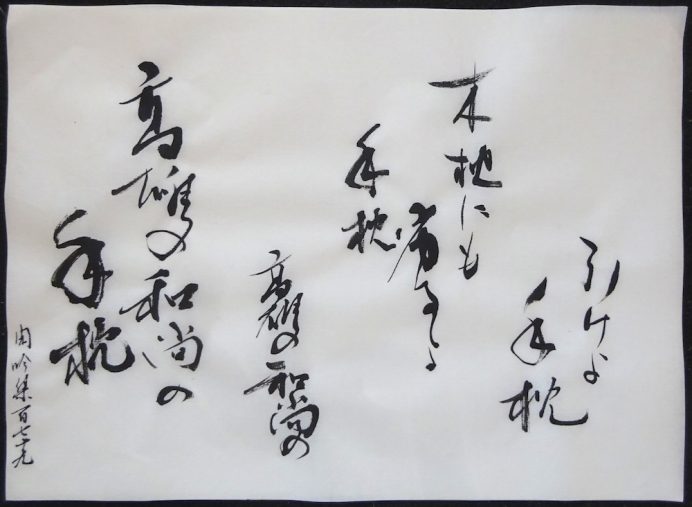 引けよ
手枕
木枕にも
劣るよ
手枕
高雄の和尚の
高雄の和尚の
手枕
閑吟集百七十九